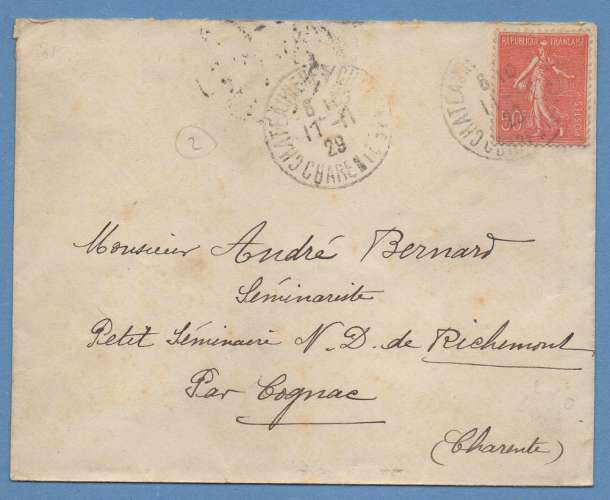 RÉPUBLIQUE FRANÇAISE
50c
POSTES
17-11
29
CHARENTE
2
Monsieur André Bernard
Séminariste
Petit Séminaire N. D. de Richemont
Par Cognac
(Charente)